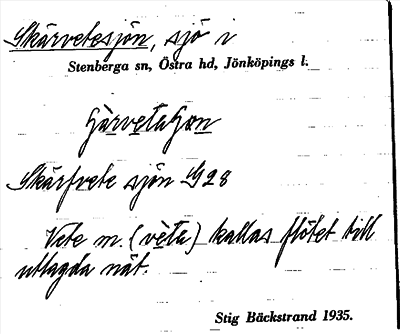 Skärvetesjön, sjö i
Stenberga sn, Östra hd, Jönköpings l.
Skärfvete sjön G28
Vete m. (vèta) kallas flötet till
utlagda nät.
Stig Bäckstrand 1935.